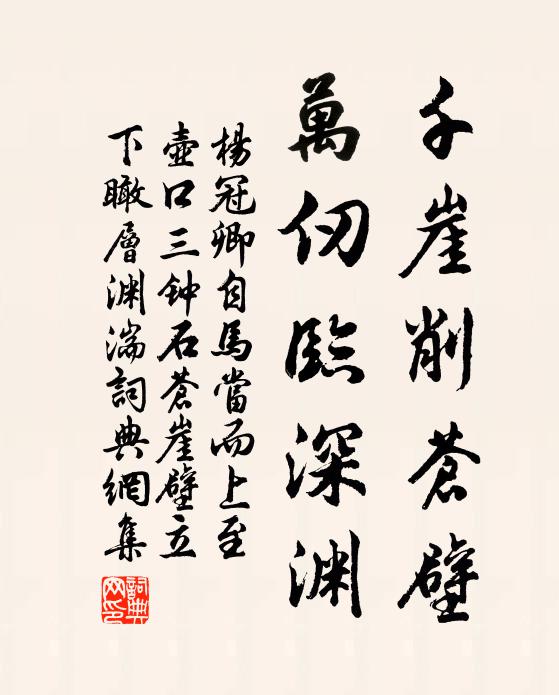 千崖削蒼壁
萬仞臨深渊
楊冠卿自馬當而上至
壺口三钟石蒼崖壁立
下瞰層渊湍詞典網集
詞典
网印